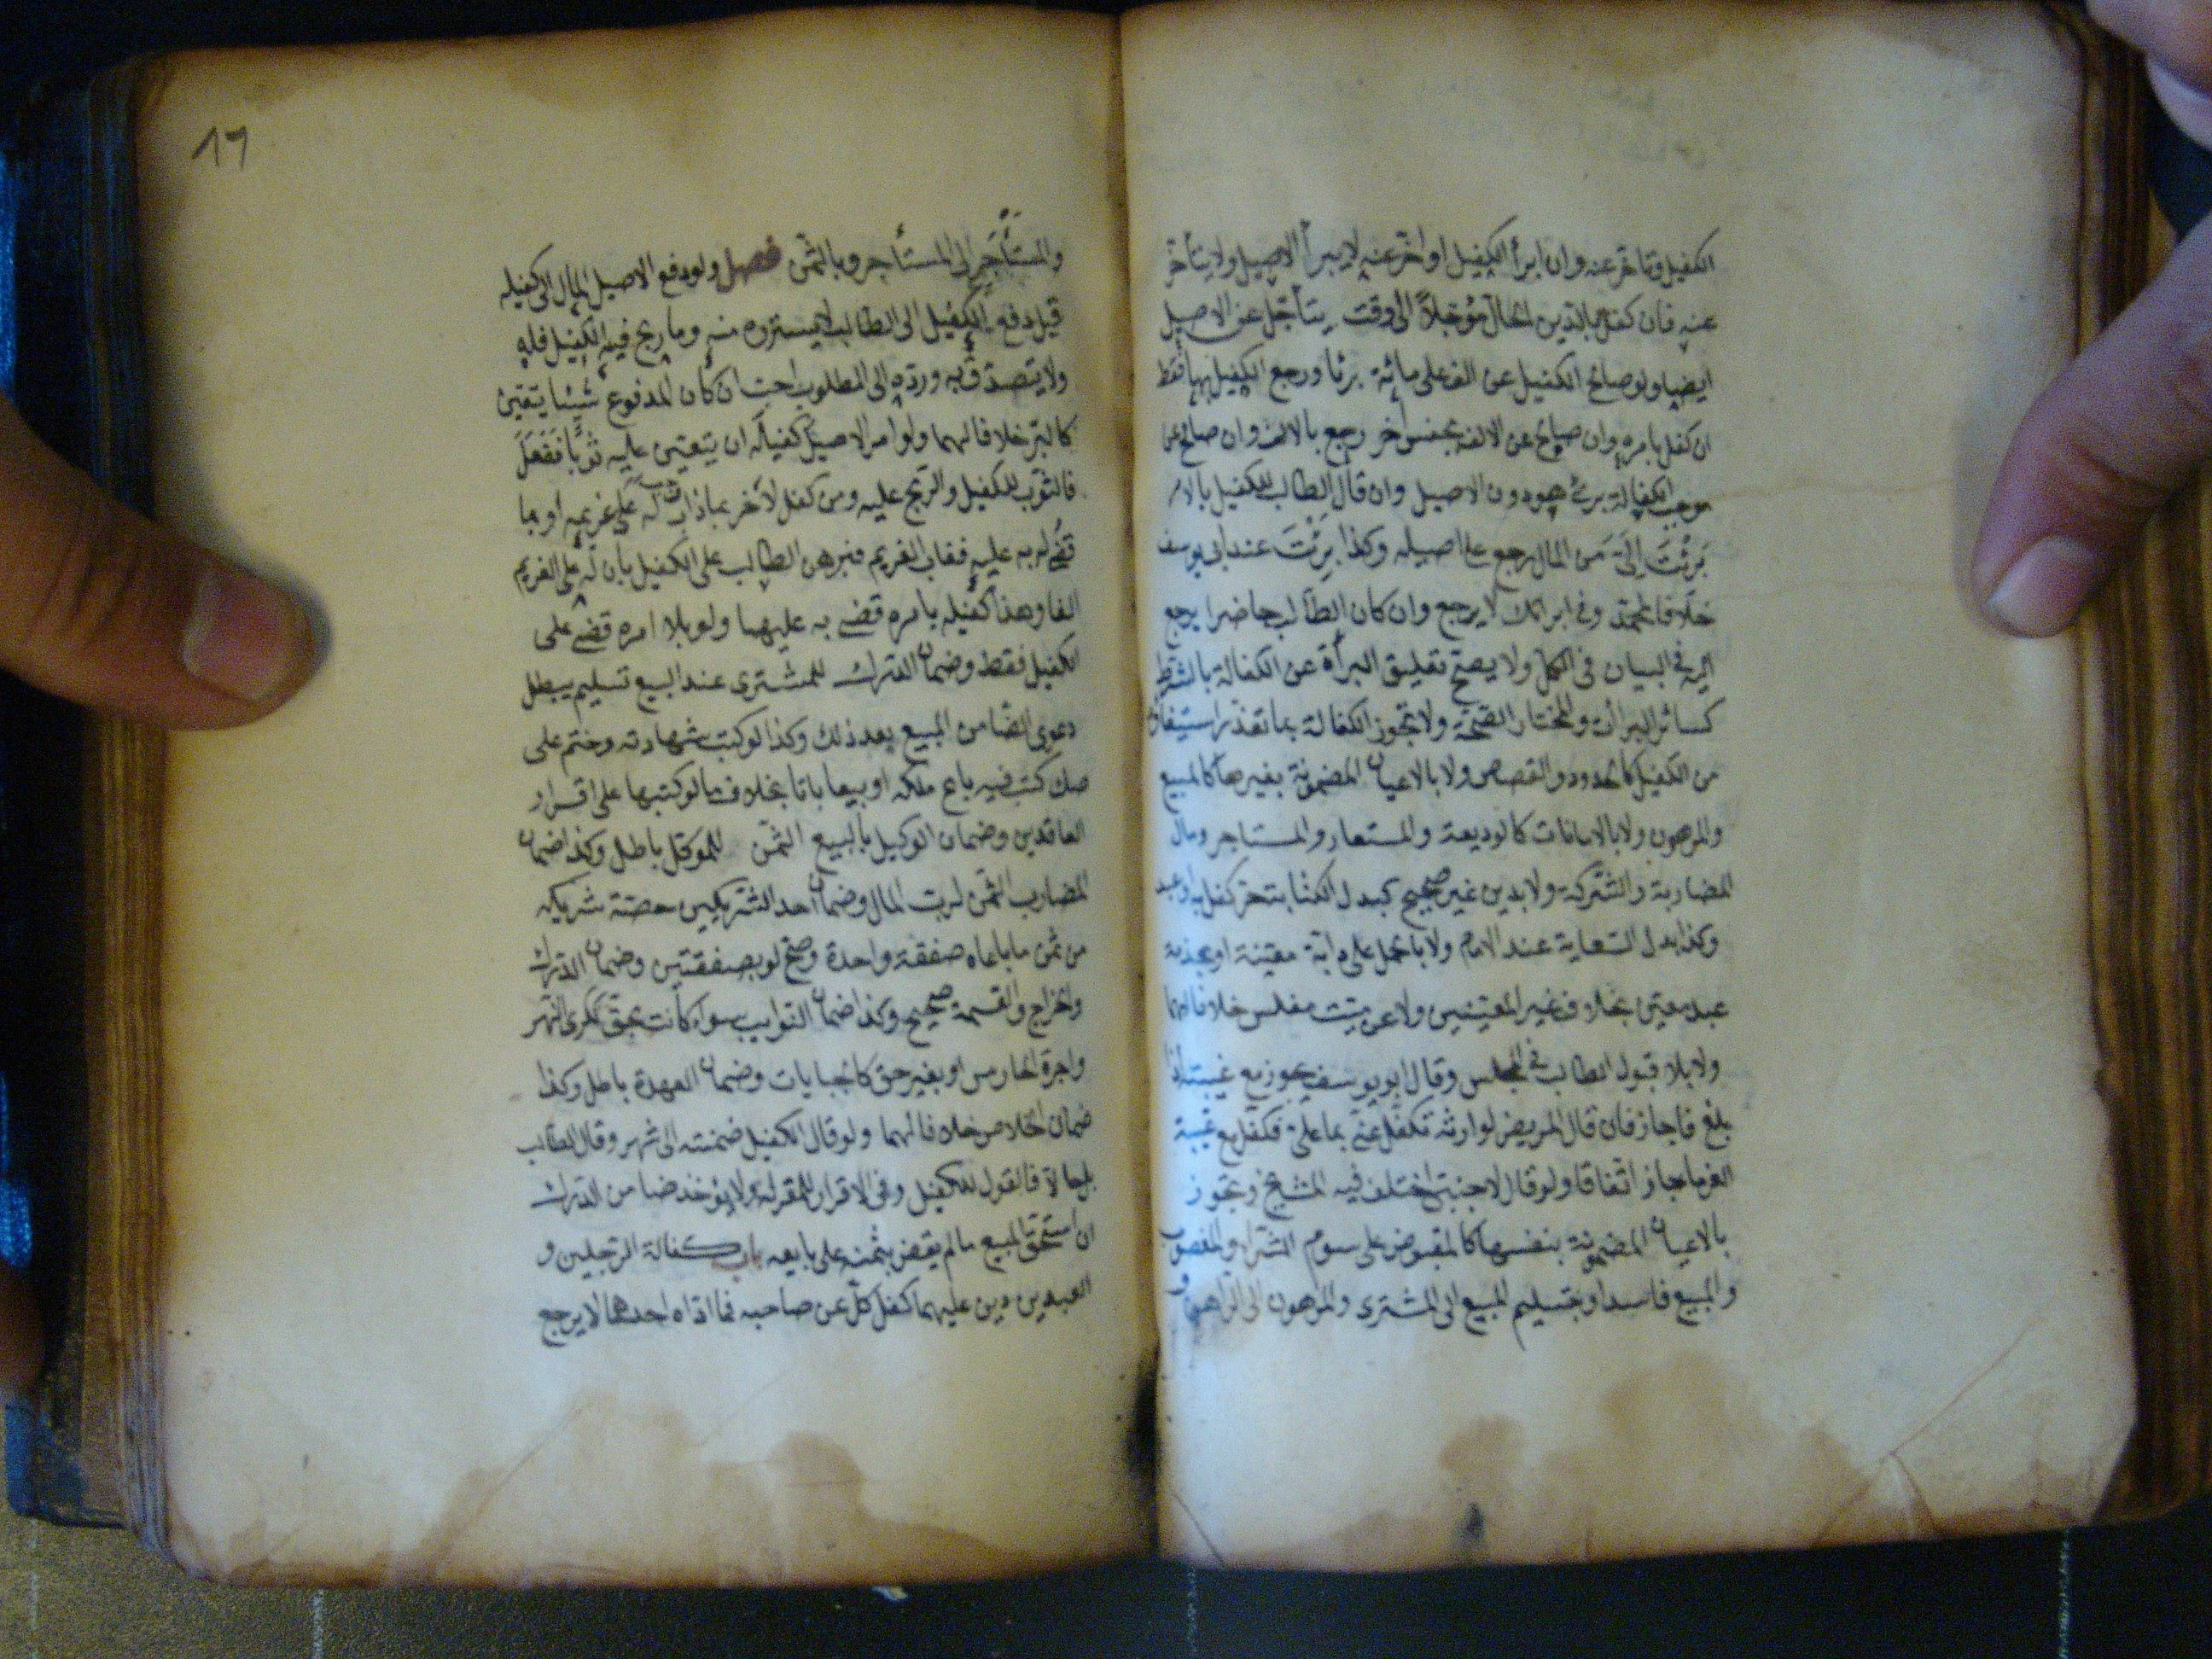 الكفيل وتاخر عنه وان ابرأ الكفيل او اخر عنه لا يبرأ الاصيل ولا يتأخر
عنه فان كفل بالدين الحال مؤجلا الى وقت يتأجل عن الاصيل
ايضا ولو صالح الكفيل عن الف على مائة برئا ورجع الكفيل بها فقط
ان كفل بامره وان صالح عن الالف بجنس اخر رجع بالالف وان صالح عن
موجب الكفالة برئ هو دون الاصيل وان قال الطالب للكفيل بالامر
بَرِئْتَ اِلَىَّ مَن المال رجع على اصيله وكذا بَرِئْتَ عند ابى يوسف
خلافا لمحمد وفى ابرأتك لا يرجع وان كان الطالب حاضرا يرجع
اليه فى البيان فى الكل ولا يصح تعليق البرأة عن الكفالة بالشرط
كسائر البرأت والمختار الصحة ولا تجوز الكفالة بما تعذر استيفاؤه
من الكفيل كالحدود والقصاص ولا بالاعيان المضمونة بغيرها كالمبيع
والمرهون ولا بالامانات كالوديعة والمستعار والمستاجر ومال
المضاربة والشركة ولا بدين غير صحيح كبدل الكتابة حر كفل به او عبد
وكذا بدل السعاية عند الامام ولا بالحمل على دابة معينة او بخدمة
عبد معين بخلاف غير المعينين ولا عن ميت مفلس خلافا لهما
ولا بلا قبول الطالب فى المجلس وقال ابو يوسف يجوز مع غيبته اذا
بلغ فاجاز فان قال المريض لوارثه تكفل عنى بما على فكفل مع غيبة
الغرما جاز اتفاقا ولو قال لاجنبى اختلف فيه المشايخ وتجوز
بالاعيان المضمونة بنفسها كالمقبوض على سوم الشراء والمغصوب
والمبيع فاسدا وبتسليم المبيع الى المشترى والمرهون الى الراهن و
١٦
والمستأجَر الى المستأجر وبالثمن فصل ولو دفع الاصيل المال الى كفيله
قبل دفع الكفيل الى الطالب لا يسترده منه وما ربح فيه الكفيل فله
ولا يتصدق به ورده الى المطلوب احب ان كان المدفوع شيئا يتعين
كالبر خلافا لهما ولو امر الاصيل كفيله ان يتعين عليه ثوبًا فَفَعَلَ
فالثوب للكفيل والربح عليه ومن كفل لآخر بما ذاب له على غريمه او بما
قُضى له به عليه فغاب الغريم فبرهن الطالب على الكفيل بان له على الغريم
الفا وهذا كفيله بامره قضى به عليهما ولو بلا امره قضى على
الكفيل فقط وضمان الدرك للمشترى عند البيع تسليم يبطل
دعوى الضامن المبيع بعد ذلك وكذا لو كتب شهادته وختم على
صك كتب فيه باع ملكه او بيعا باتا بخلاف ما لو كتبها على اقرار
العاقدين وضمان الوكيل بالبيع الثمن للموكل باطل وكذا ضمان
المضارب الثمن لرب المال وضمان احد الشريكين حصة شريكه
من ثمن ما باعاه صفقة واحدة وصح لو بصفقتين وضمان الدرك
والخراج والقسمة صحيح وكذا ضمان النوايب سواء كانت بحق ككرى النهر
واجرة الحارس او بغير حق كالجبايات وضمان العهدة باطل وكذا
ضمان الخلاص خلافا لهما ولو قال الكفيل ضمنته الى شهر وقال الطالب
بل حالا فالقول للكفيل وفى الاقرار للمقر له ولا يؤخذ ضامن الدرك
ان استحق المبيع ما لم يقض بثمنه على بايعه باب كفالة الرجلين و
العبدين دين عليهما كفل كل عن صاحبه فما اداه احدهما لا يرجع